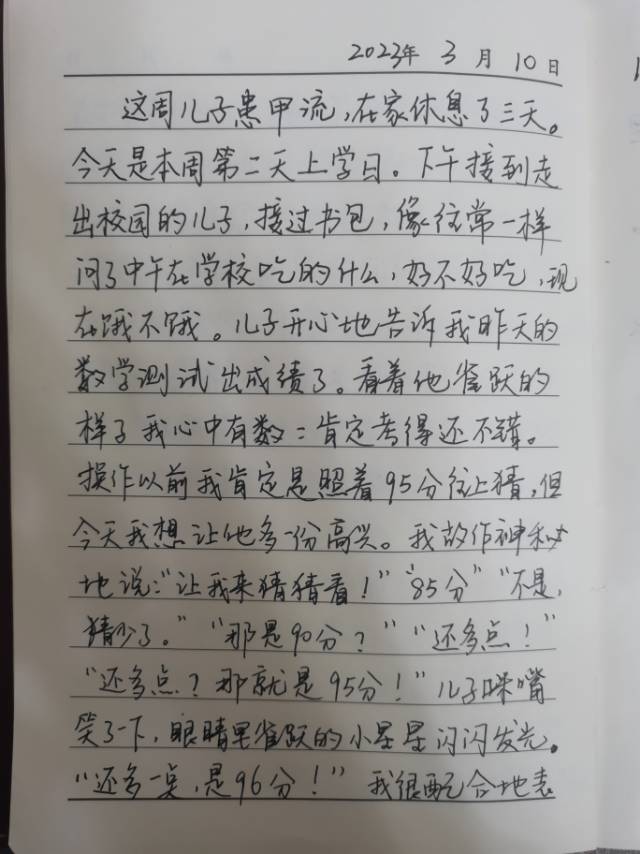 2023年 3月 10日
这周儿子患甲流,在家休息了三天。
今天是本周第二天上学日。下午接到走
出校园的儿子,接过书包,像往常一样
问了中午在学校吃的什么,好不好吃,现
在饿不饿。儿子开心地告诉我昨天的
数学测试出成绩了。看着他雀跃的
样子我心中有数:肯定考得还不错。
操作以前我肯定是照着95分往上猜,但
今天我想让他多一份高兴。我故作神秘
地说:“让我来猜猜看!”“85分”“不是,
猜少了。”“那是90分?”“还多点!”
“还多点?那就是95分!”儿子咪嘴
笑了一下,眼睛里雀跃的小星星闪闪发光。
“还多一点,是96分!”我很配合地表